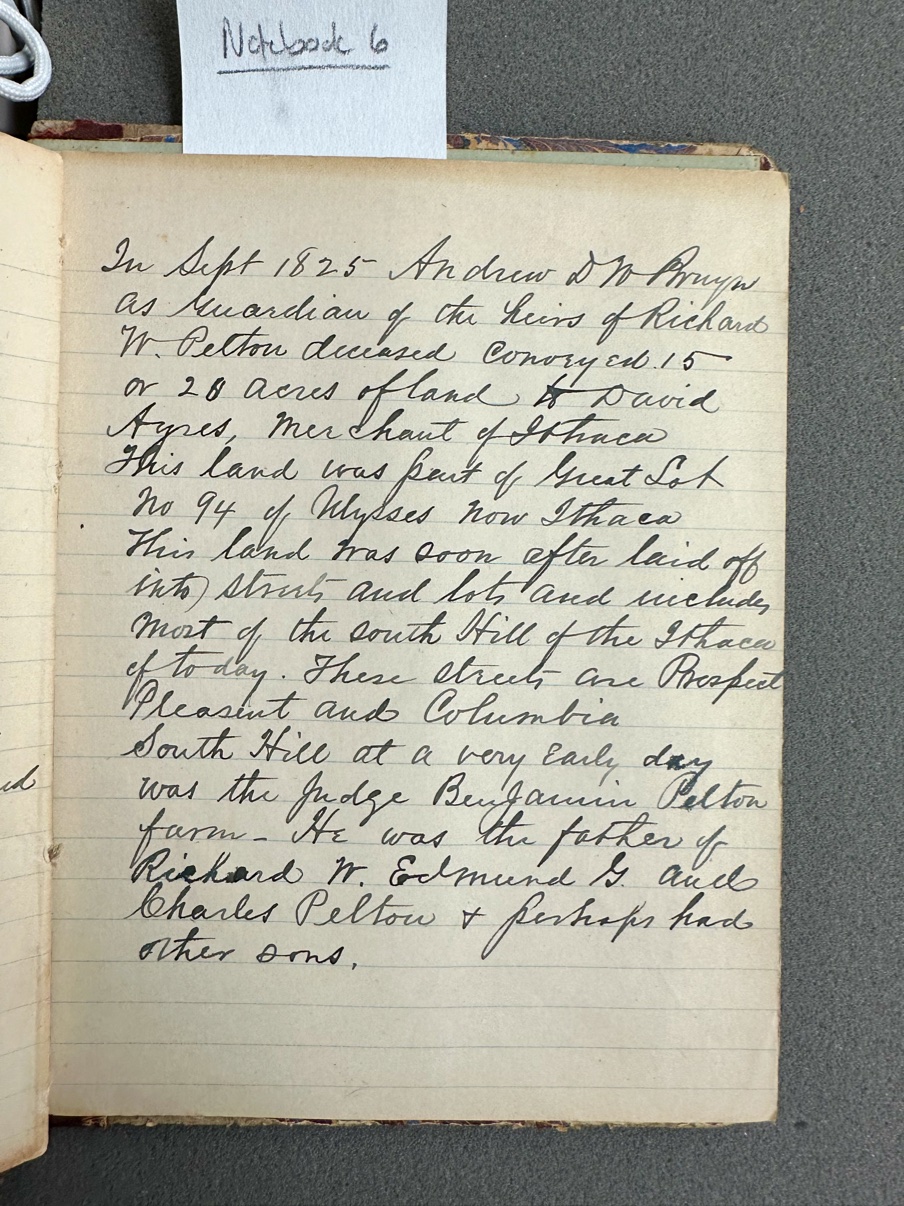 Notebook 6
In Sept 1825 Andrew D W Bruyn
as Guardian of the heirs of Richard
W. Pelton deceased conveyed 15
or 20 acres of land to David
Ayres, Merchant of Ithaca
This land was part of Great Lot
No 94 of Ulysses now Ithaca
This land was soon after laid off
into streets and lots and includes
most of the south Hill of the Ithaca
of today. These streets are Prospect
Pleasent and Columbia
South Hill at a very Early day
was the Judge Benjamin Pelton
farm - He was the father of
Richard W. Edmund G. and
Charles Pelton & perhaps had
other sons.